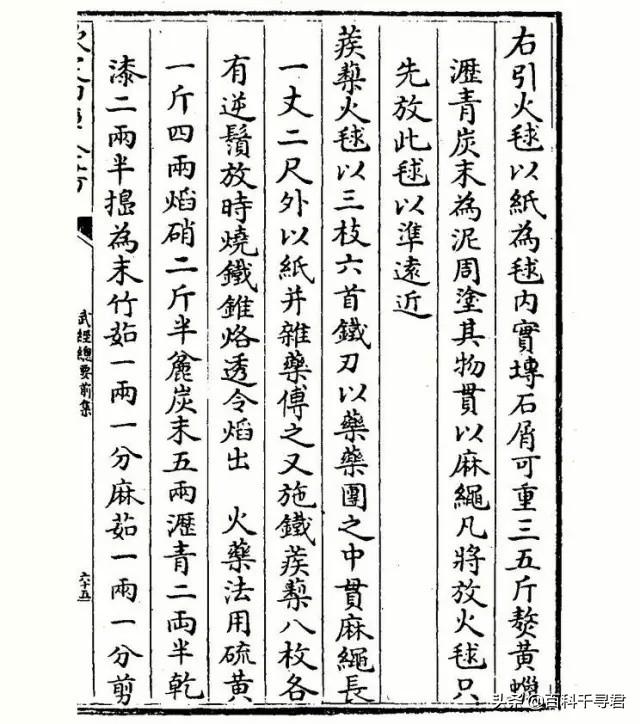 右引火毬以紙為毬內實塼石屑可重三五斤熬黃蠟
瀝青炭末為泥周塗其物貫以麻繩凡將放火毬只
先放此毬以準遠近
蒺蔾火毬以三枝六首鐵刃以藥藥團之中貫麻繩長
一丈二尺外以紙并雜藥傅之又施鐵蒺蔾八枚各
有逆鬚放時燒鐵錐烙透令焰出 火藥法用硫黃
一斤四兩焰硝二斤半麄炭末五兩瀝青二兩半乾
漆二兩半搗為末竹茹一兩一分麻茹一兩一分剪
武經總要前集
六十五
头条@百科千寻君